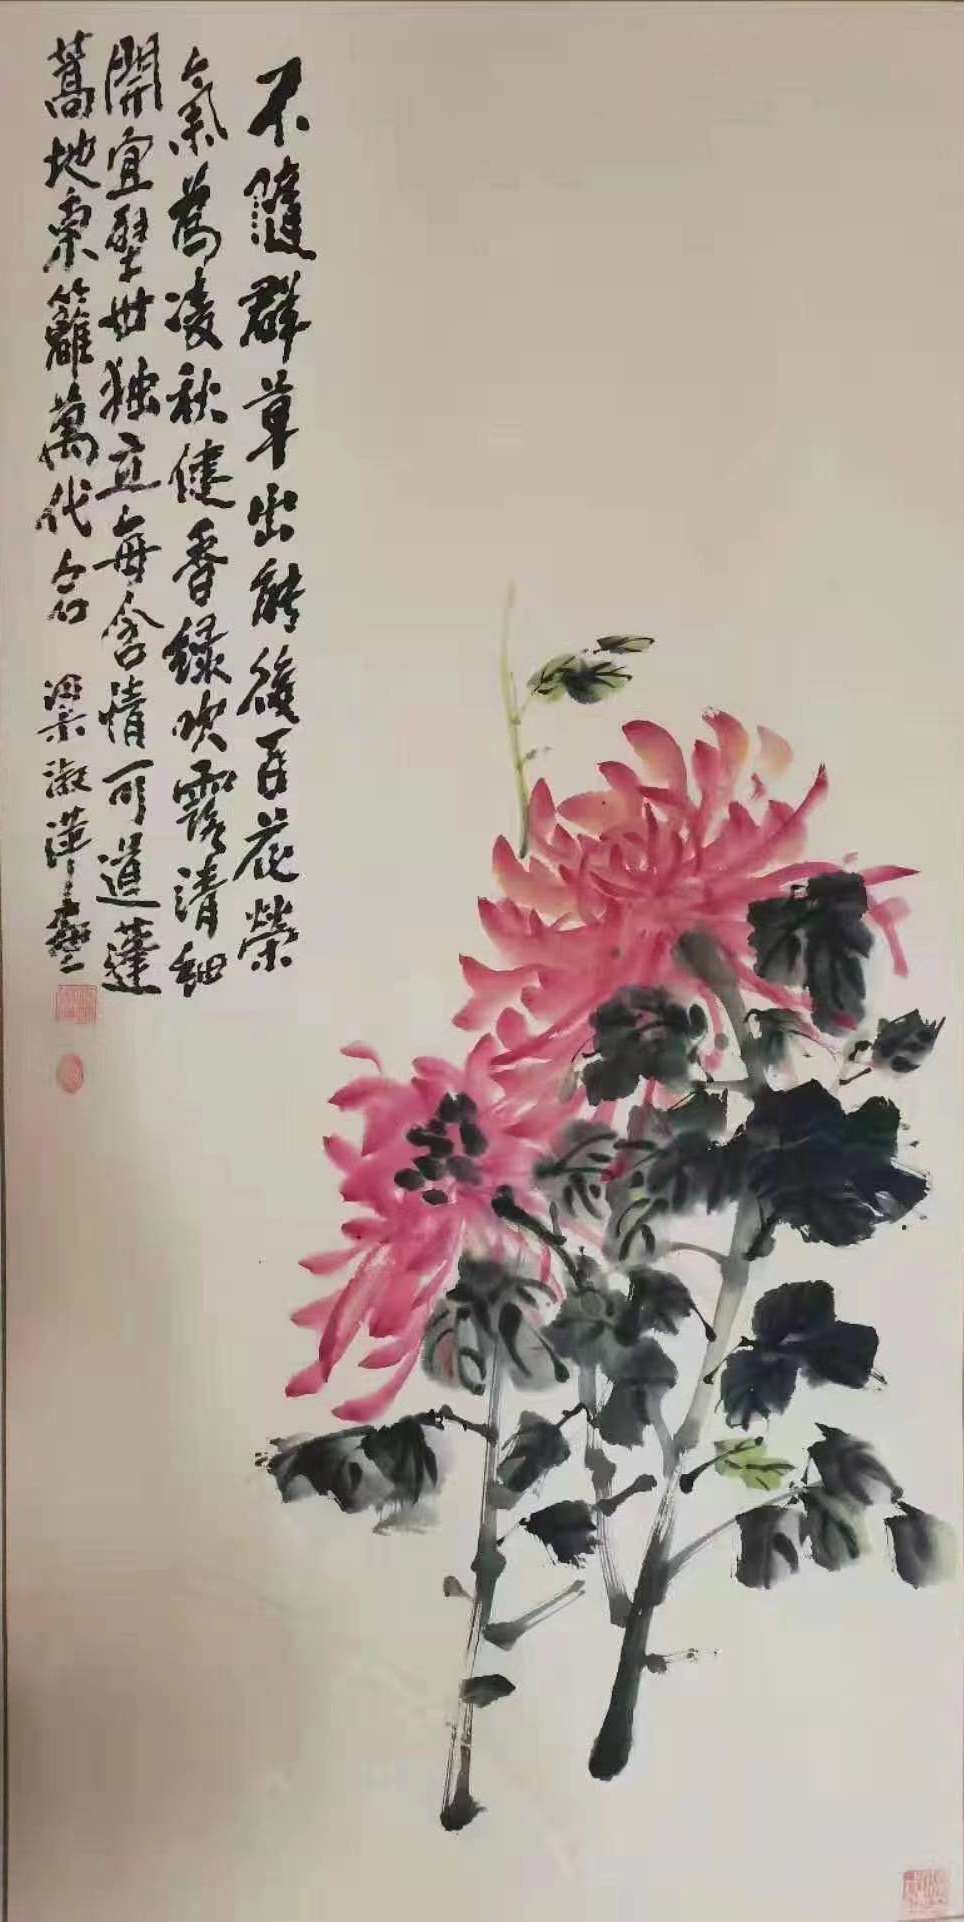 不隨群草出能後百花榮
氣爲凌秋健香緣吹露清細
開宜壁世独立每含情可道蓬
蒿地東籬萬代名 梁淑萍畫